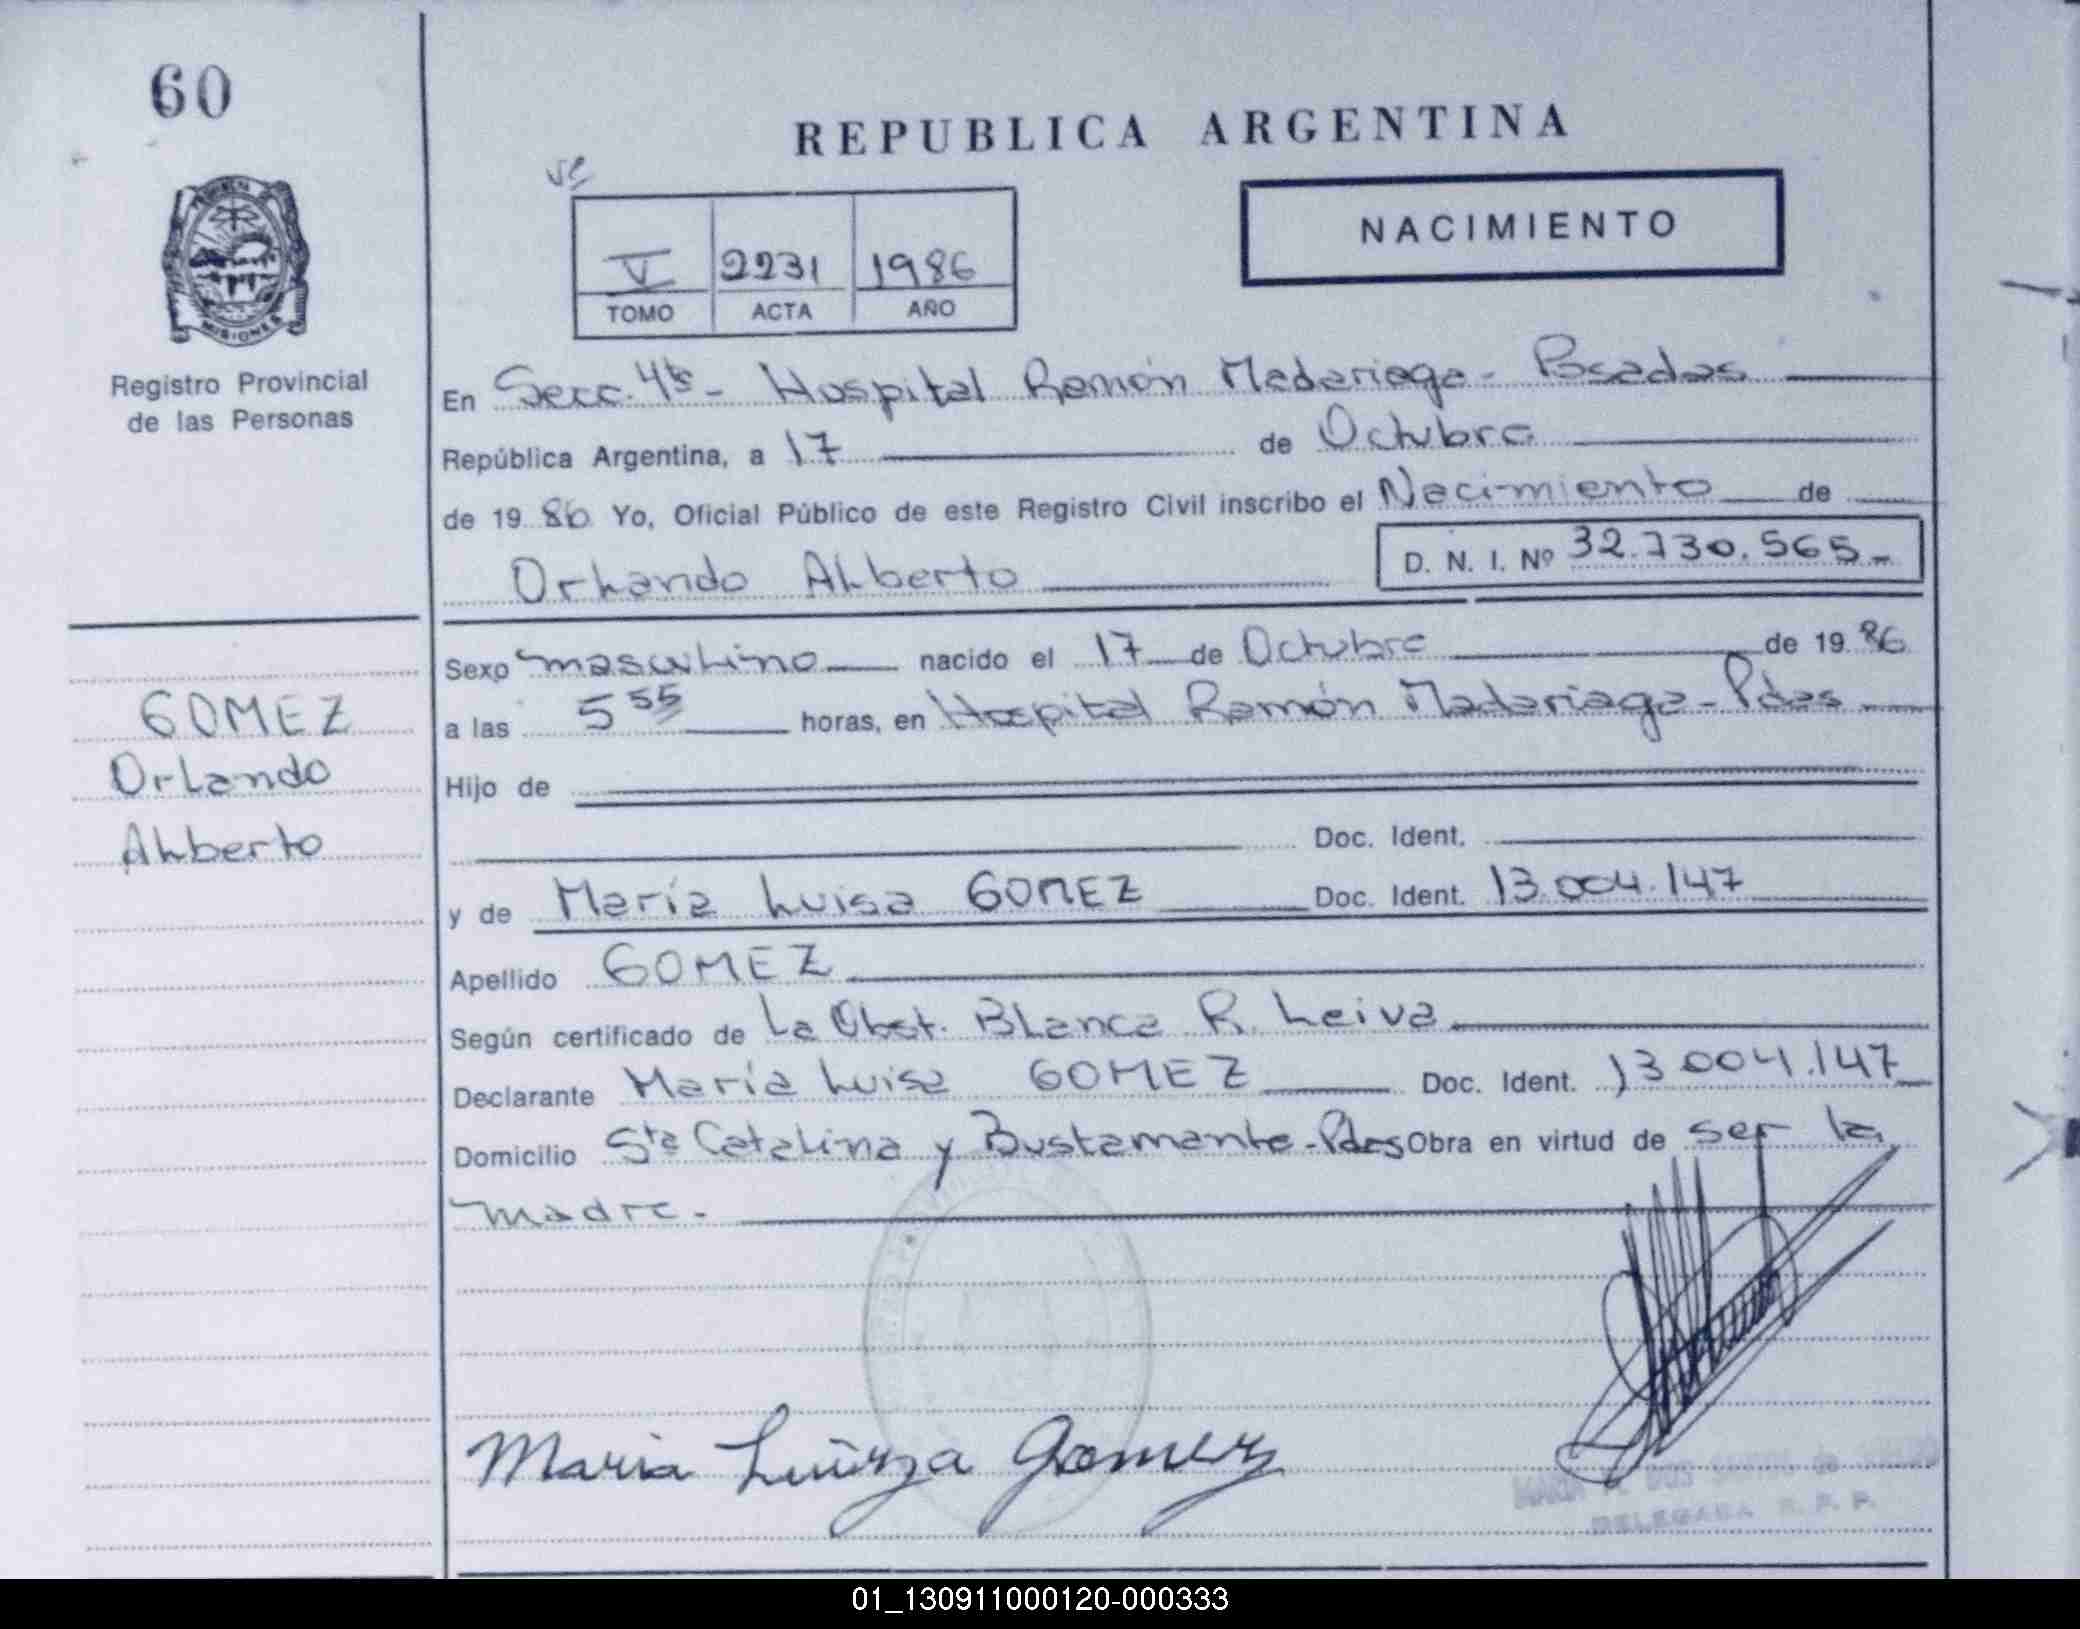 60
REPUBLICA ARGENTINA
NACIMIENTO
V 2231 1986
TOMO ACTA AÑO
MISIONES
Registro Provincial
de las Personas
En Secc. 4ta - Hospital Ramón Madariaga - Posadas
República Argentina, a 17 de Octubre
de 19 86 Yo, Oficial Público de este Registro Civil inscribo el Nacimiento de
Orlando Alberto D. N. I. Nº 32.730.565.-
Sexo masculino nacido el 17 de Octubre de 19 86
GOMEZ
Orlando
Alberto
a las 5 55 horas, en Hospital Ramón Madariaga - Pdas
Hijo de
Doc. Ident.
y de María Luisa GOMEZ Doc. Ident. 13.004.147
Apellido GOMEZ
Según certificado de La Obst. Blanca R. Leiva
Declarante María Luisa GOMEZ Doc. Ident. 13.004.147
Domicilio Sta Catalina y Bustamante - Pdas Obra en virtud de ser la
madre.-
Maria Luirza Gomez
DELEGADA R. P. P.
01_130911000120-000333